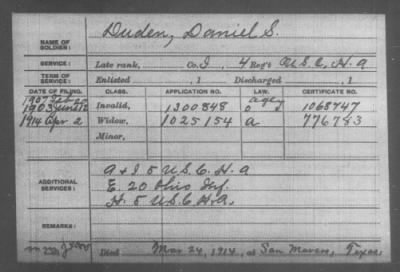 NAME OF SOLDIER: Duden, Daniel S.
SERVICE: Late rank, Co. I, 4 Reg't U.S.C.H.A
TERM OF SERVICE: Enlisted , 1 Discharged , 1
DATE OF FILING. CLASS. APPLICATION NO. LAW. CERTIFICATE NO.
1907 Feb age
1903 Invalid, 1300848 1068747
1914 Apr 2 Widow, 1025154 a 776783
Minor,
ADDITIONAL SERVICES: A + I 5 U.S.C.H.A
E. 20 Ohio Inf.
H. 5 U.S.C.H.A.
REMARKS:
Died Mar 24, 1914, at San Marcos, Texas